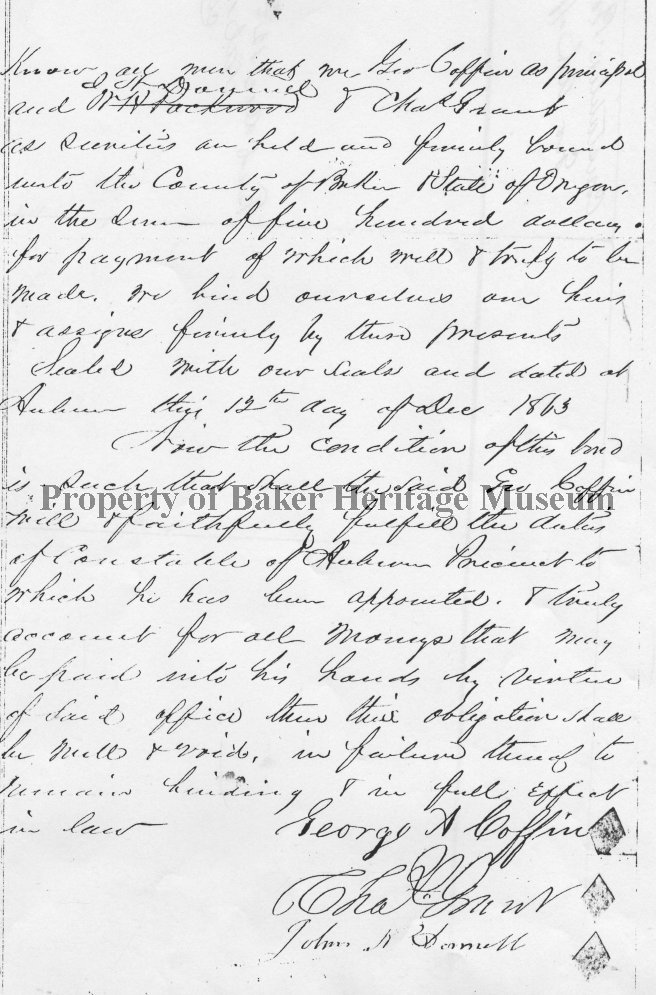 Know all men that we Geo Coffin as principal
and W H Packwood & Chas Grant
as sureties are held and firmly bound
unto the County of Baker & State of Oregon,
in the sum of five hundred dollars.
for payment of which well & truly to be
made. we bind ourselves our heirs
& assigns firmly by these presents
Sealed with our seals and dated at
Auburn this 12th day of Dec 1863
Now the condition of this bond
is such that shall the said Geo Coffin
well & faithfully fulfill the duties
Property of Baker Heritage Museum
of Constable of Auburn Precinct to
which he has been appointed. & truly
account for all moneys that may
be paid into his hands by virtue
of said office then this obligation shall
be null & void, in failure thereof to
remain binding & in full effect
in law
George A Coffin
Chas Grant
John